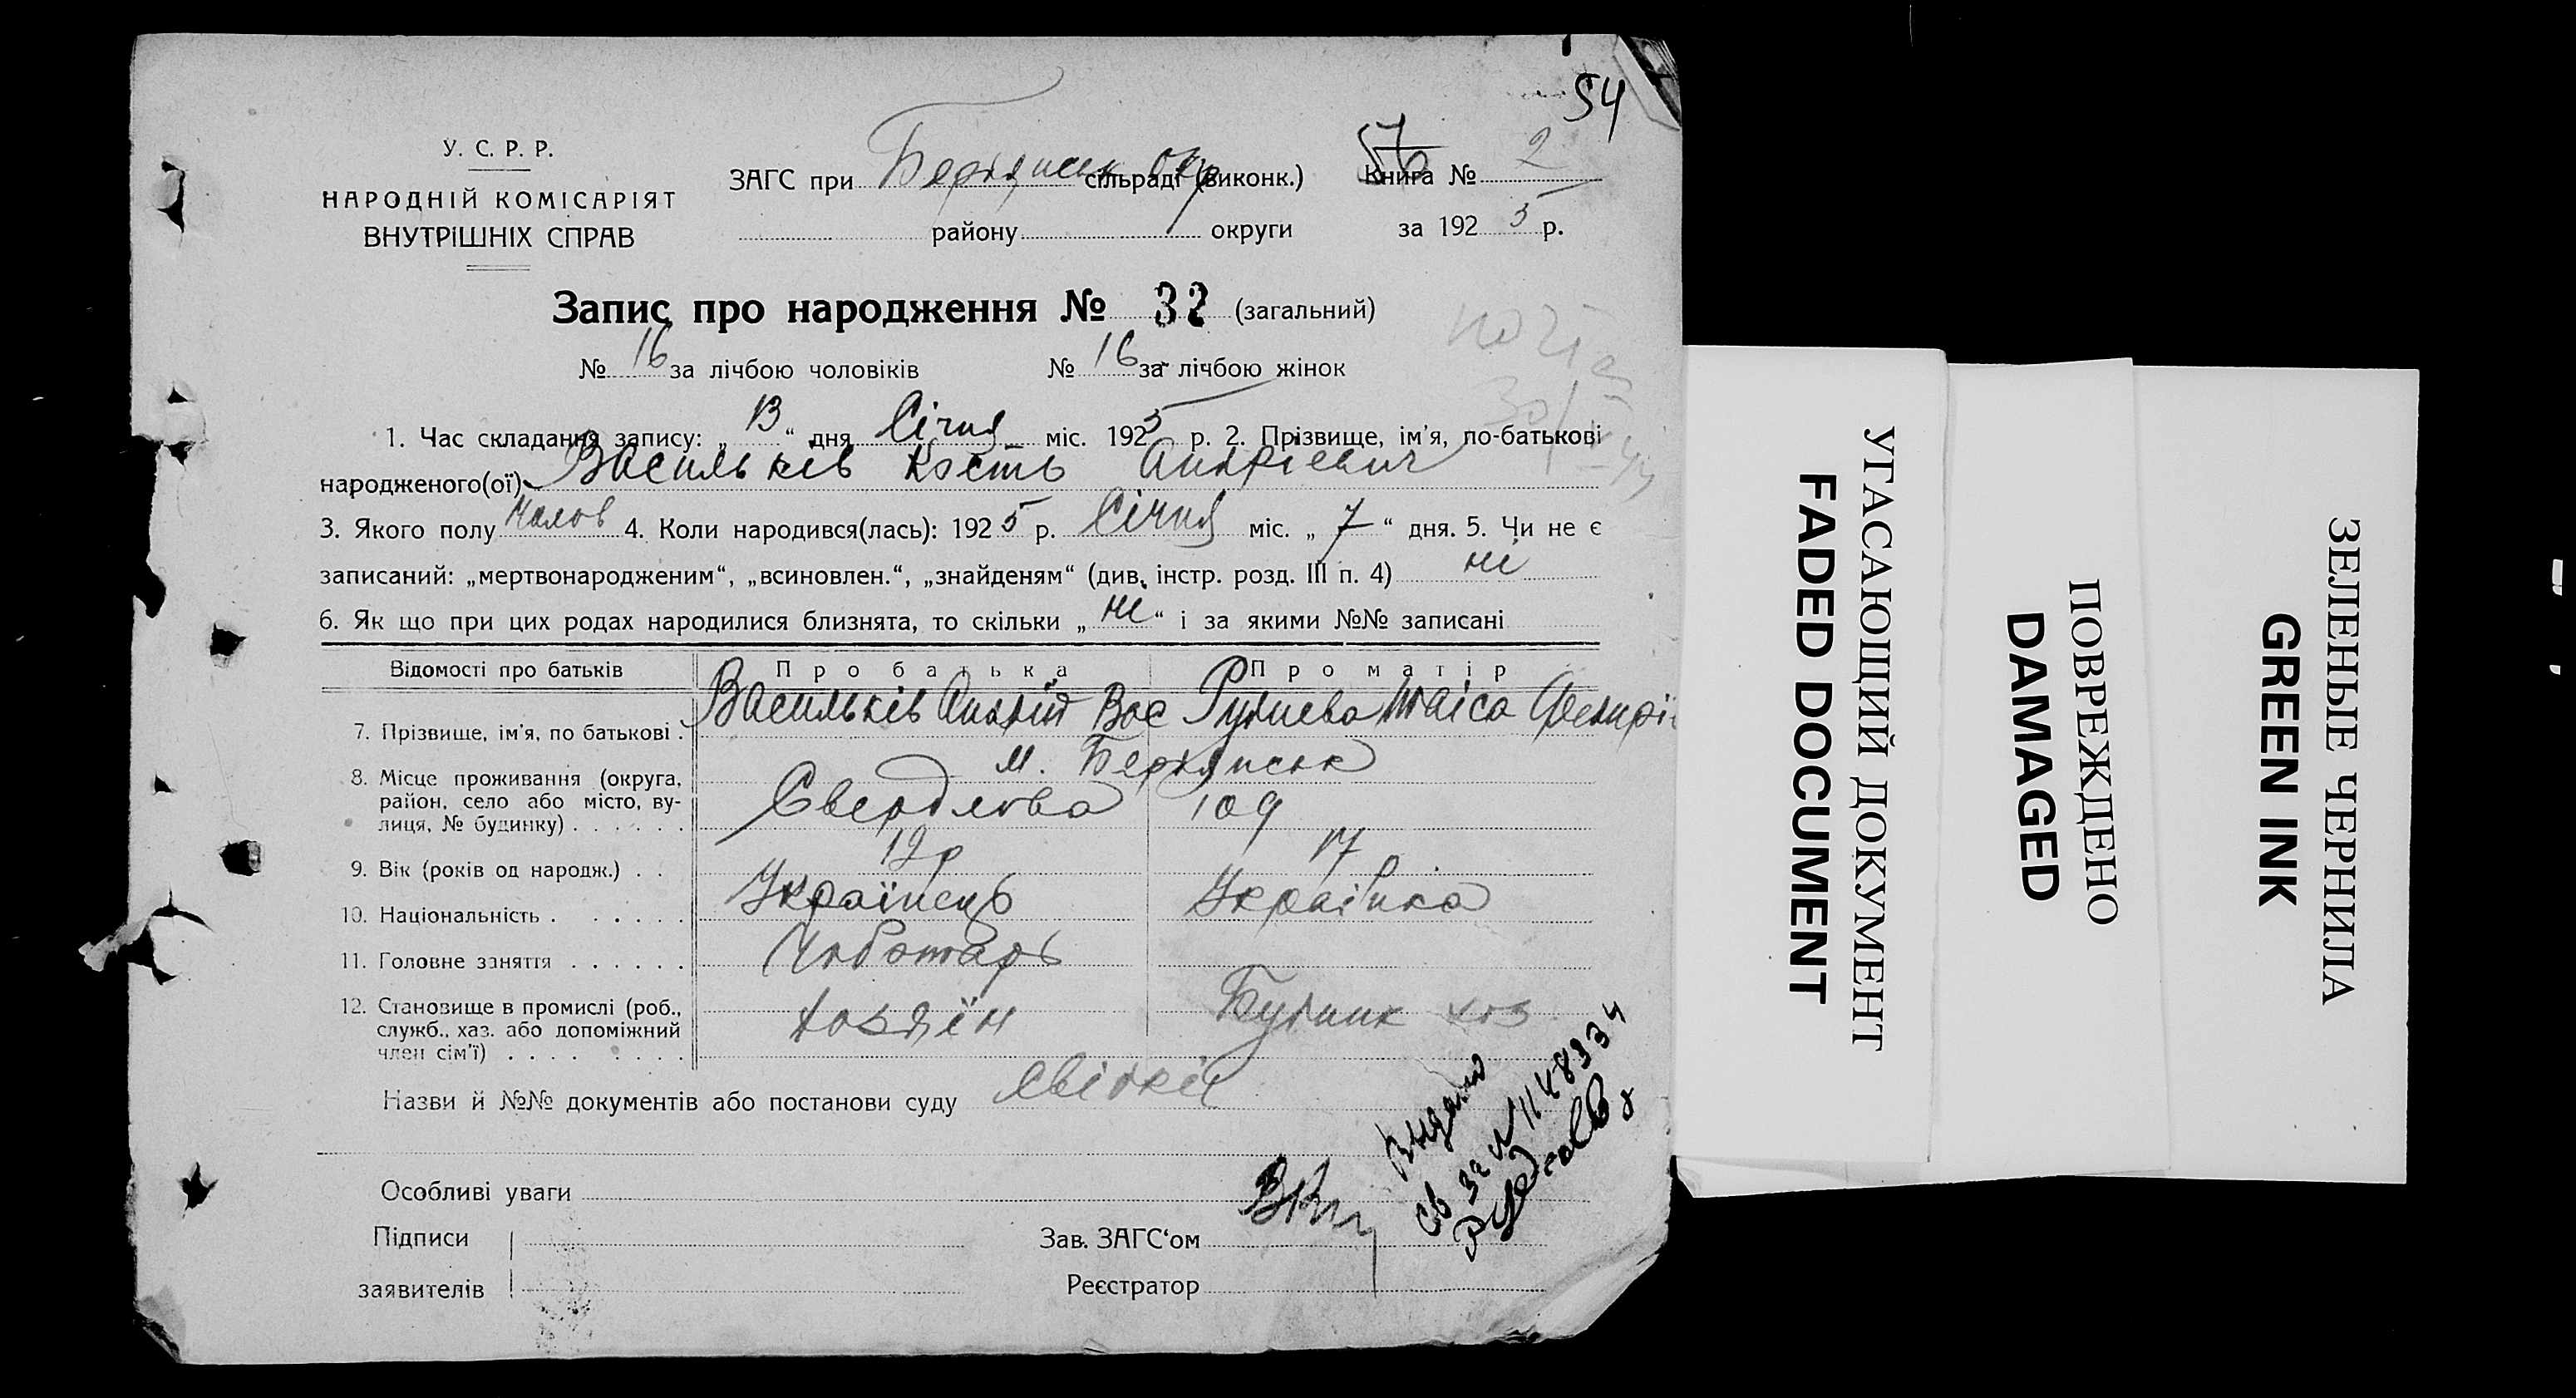 54
У. С. Р. Р.
НАРОДНІЙ КОМІСАРІЯТ
ВНУТРІШНІХ СПРАВ
ЗАГС при Бердянськ Окр сільраді (виконк.) Книга № 2
району округи за 1925 р.
Запис про народження № 32 (загальний)
№ 16 за лічбою чоловіків № 16 за лічбою жінок
1. Час складання запису: „13“ дня Січня міс. 1925 р. 2. Прізвище, ім'я, по-батькові
народженого(ої) Васильків Кость Андрієвич
3. Якого полу Чолов 4. Коли народився(лась): 1925 р. Січня міс. „7“ дня. 5. Чи не є
записаний: „мертвонародженим“, „всиновлен.“, „знайденям“ (див. інстр. розд. III п. 4) ні
6. Як що при цих родах народилися близнята, то скільки „ні“ і за якими №№ записані
Відомості про батьків Про батька Про матір
7. Прізвище, ім'я, по батькові . Васильків Андрій Вас Таіса
8. Місце проживання (округа, м. Бердянськ
район, село або місто, ву-
лиця, № будинку) . . . . . . Свердлова 109
9. Вік (років од народж.) . . 19 р 17
10. Національність . . . . . . Українець Українка
11. Головне заняття . . . . . . Чоботарь
12. Становище в промислі (роб.,
служб., хаз. або допоміжний
член сім'ї) . . . . . . . . Хозяїн Будинк хоз
Назви й №№ документів або постанови суду Свідки
Особливі уваги
Підписи
заявителів
Зав. ЗАГС'ом
Реєстратор
Выдано
св за № 1148334
УГАСАЮЩИЙ ДОКУМЕНТ
FADED DOCUMENT
ПОВРЕЖДЕНО
DAMAGED
ЗЕЛЕНЫЕ ЧЕРНИЛА
GREEN INK